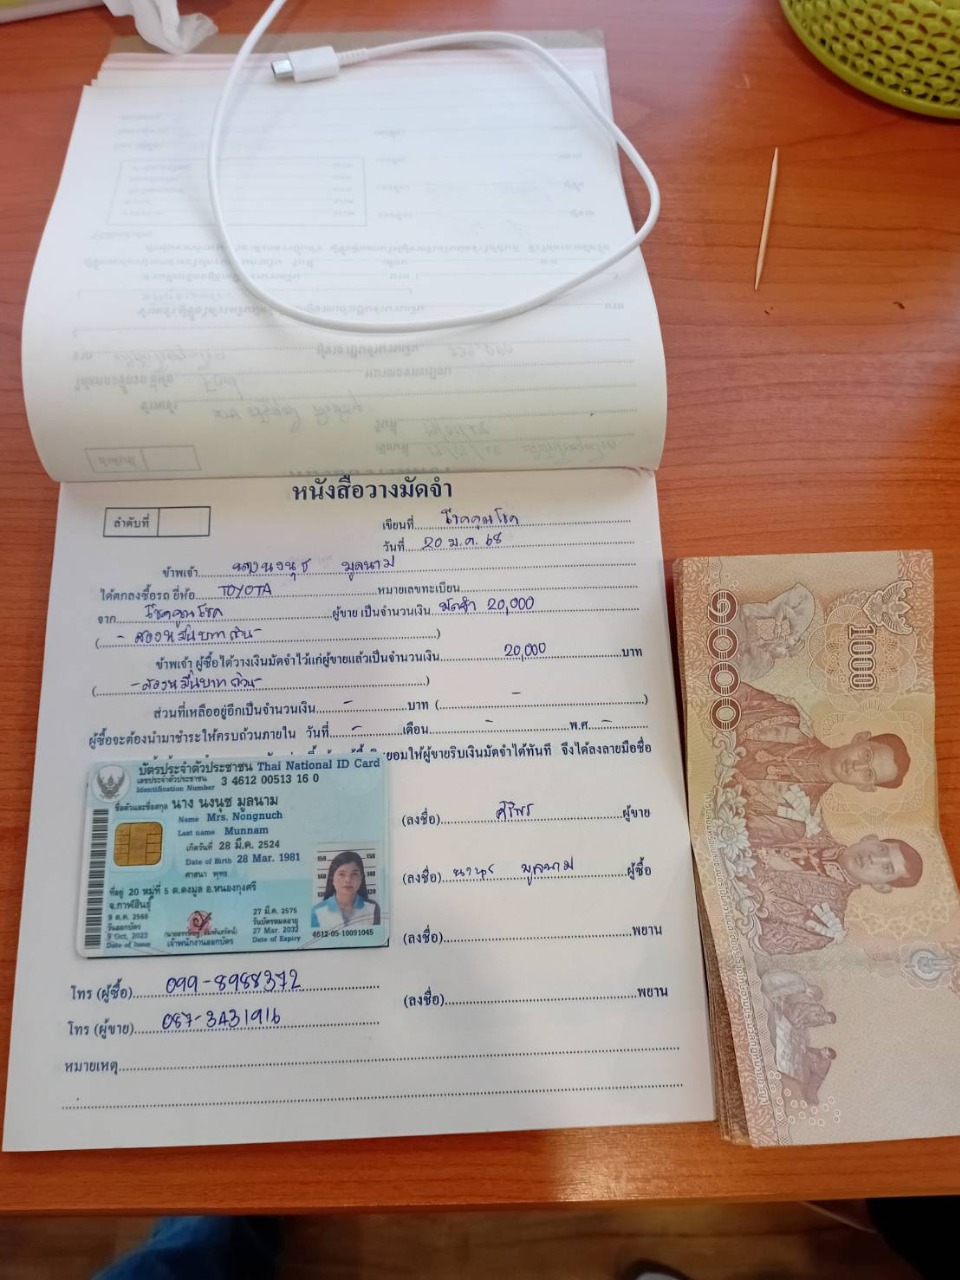 หนังสือวางมัดจำ
ลำดับที่
เขียนที่ โชคคูนโชค
วันที่ 20 ม.ค. 68
ข้าพเจ้า นางนงนุช มูลนาม
ได้ตกลงซื้อรถ ยี่ห้อ TOYOTA หมายเลขทะเบียน
จาก โชคคูนโชค ผู้ขาย เป็นจำนวนเงิน มัดจำ 20,000
(- สองหมื่นบาทถ้วน-)
ข้าพเจ้า ผู้ซื้อได้วางเงินมัดจำไว้แก่ผู้ขายแล้วเป็นจำนวนเงิน 20,000 บาท
(-สองหมื่นบาทถ้วน-)
ส่วนที่เหลืออยู่อีกเป็นจำนวนเงิน - บาท ( - )
ผู้ซื้อจะต้องนำมาชำระให้ครบถ้วนภายใน วันที่ - เดือน - พ.ศ. -
ยอมให้ผู้ขายริบเงินมัดจำได้ทันที จึงได้ลงลายมือชื่อ
บัตรประจำตัวประชาชน Thai National ID Card
เลขประจำตัวประชาชน 3 4612 00513 16 0
Identification Number
ชื่อตัวและชื่อสกุล นาง นงนุช มูลนาม
Name Mrs. Nongnuch
Last name Munnam
เกิดวันที่ 28 มี.ค. 2524
Date of Birth 28 Mar. 1981
ศาสนา พุทธ
ที่อยู่ 20 หมู่ที่ 5 ต.ดงมูล อ.หนองกุงศรี
จ.กาฬสินธุ์
9 ต.ค. 2566
วันออกบัตร
9 Oct. 2023
Date of Issue
เจ้าพนักงานออกบัตร
27 มี.ค. 2575
วันบัตรหมดอายุ
27 Mar. 2032
Date of Expiry
4612-05-10091045
(ลงชื่อ) ศิริพร ผู้ขาย
(ลงชื่อ) นงนุช มูลนาม ผู้ซื้อ
(ลงชื่อ) พยาน
(ลงชื่อ) พยาน
โทร (ผู้ซื้อ) 099-8988372
โทร (ผู้ขาย) 087-3431916
หมายเหตุ
๑๐๐๐
1000